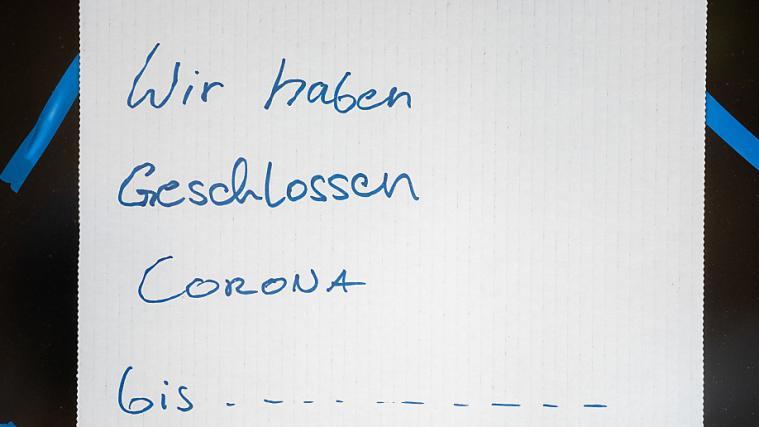 Wir haben
Geschlossen
CORONA
bis . _ _ _ _ _ _ _ _ _ _